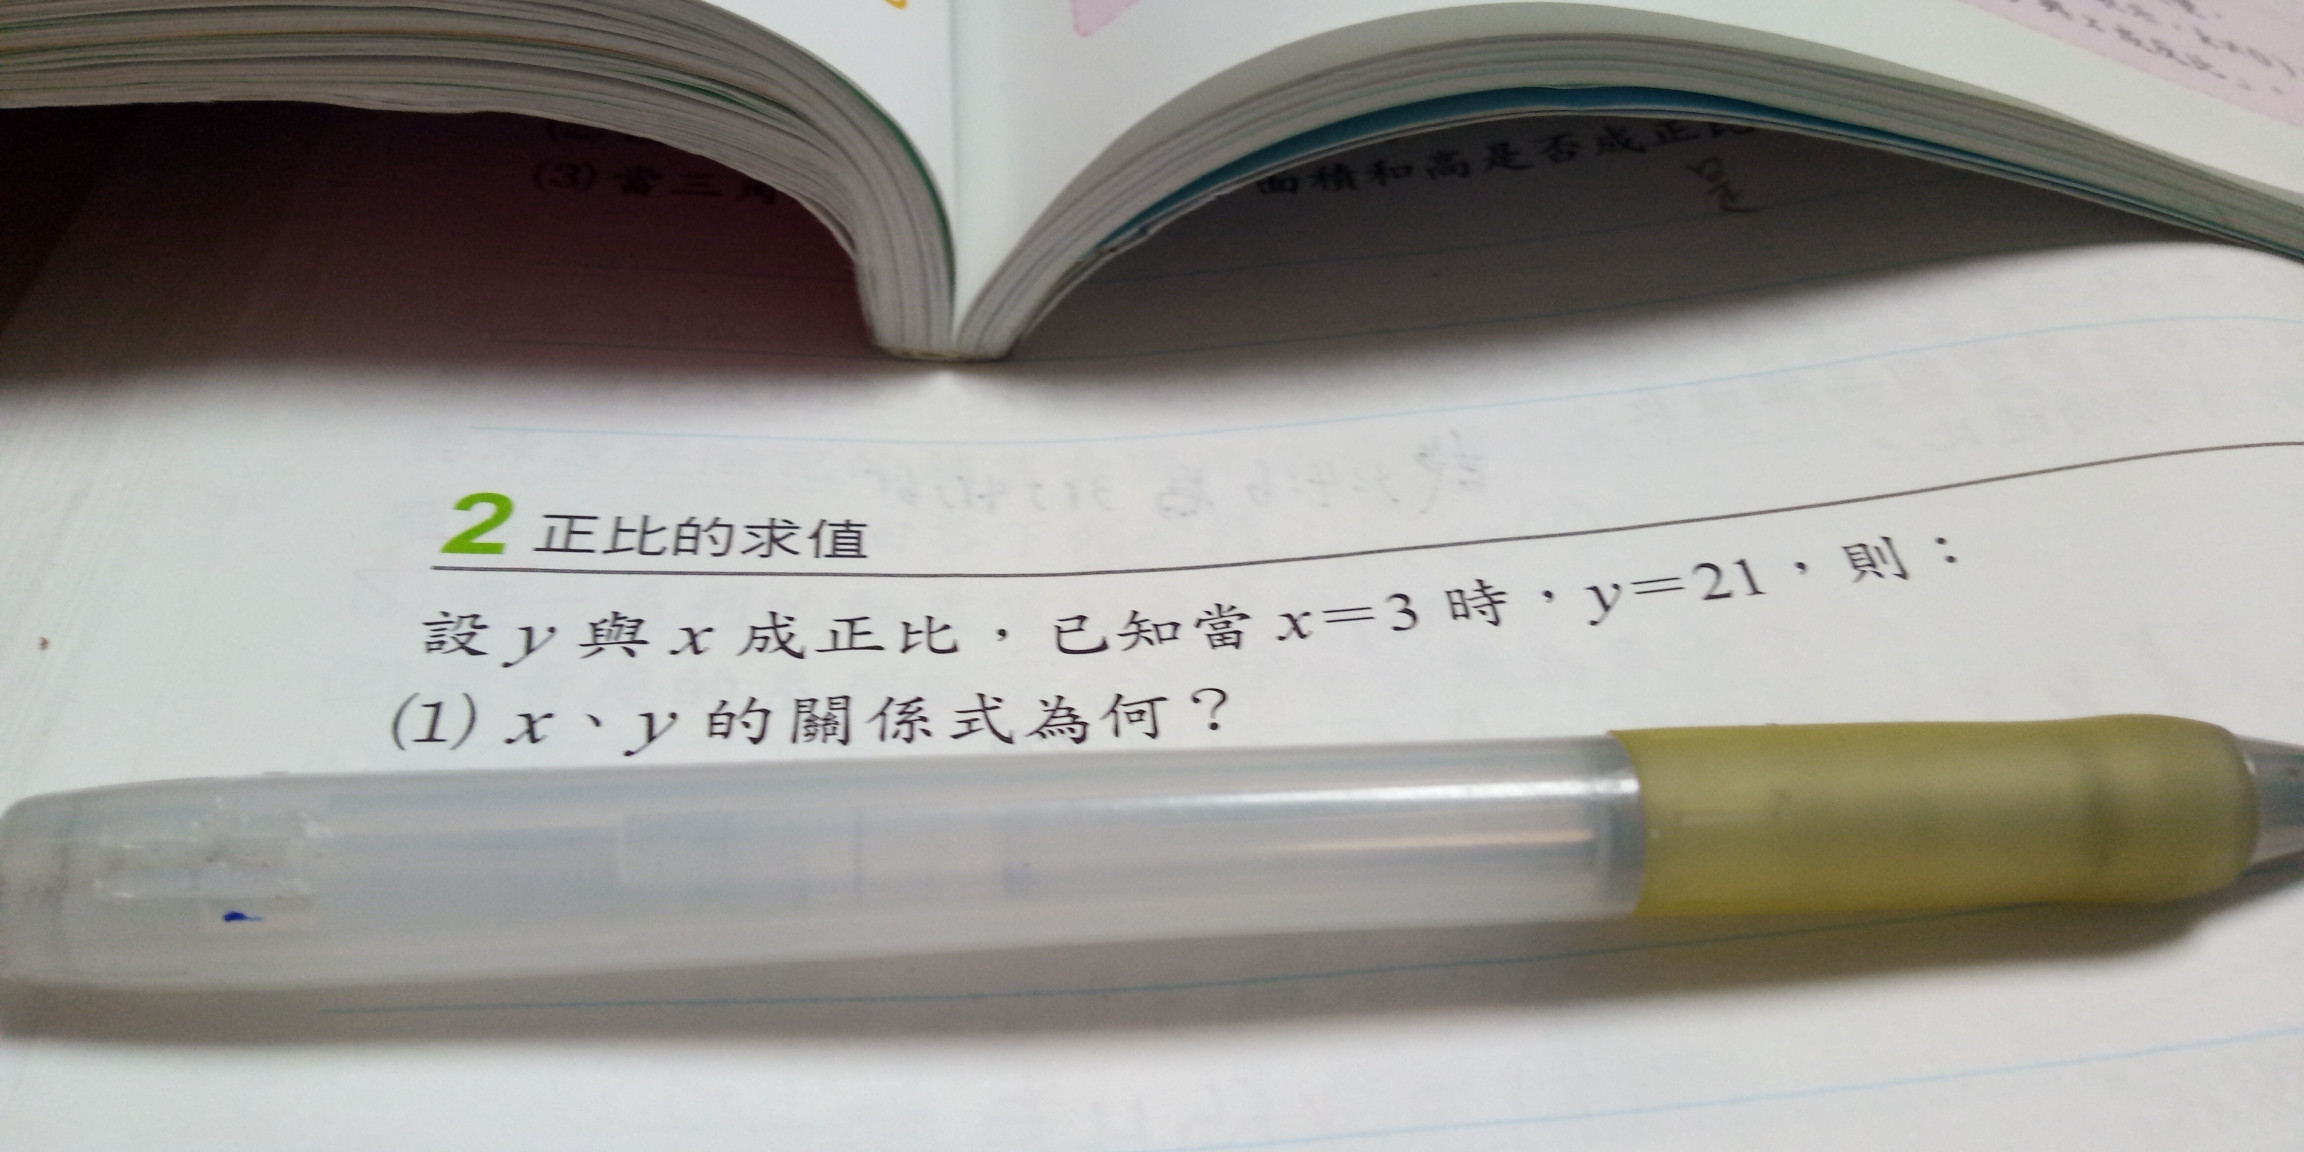 (3) 當三角
面積和高是否成正比
是
2 正比的求值
設 y 與 x 成正比，已知當 x=3 時，y=21，則：
(1) x、y 的關係式為何？